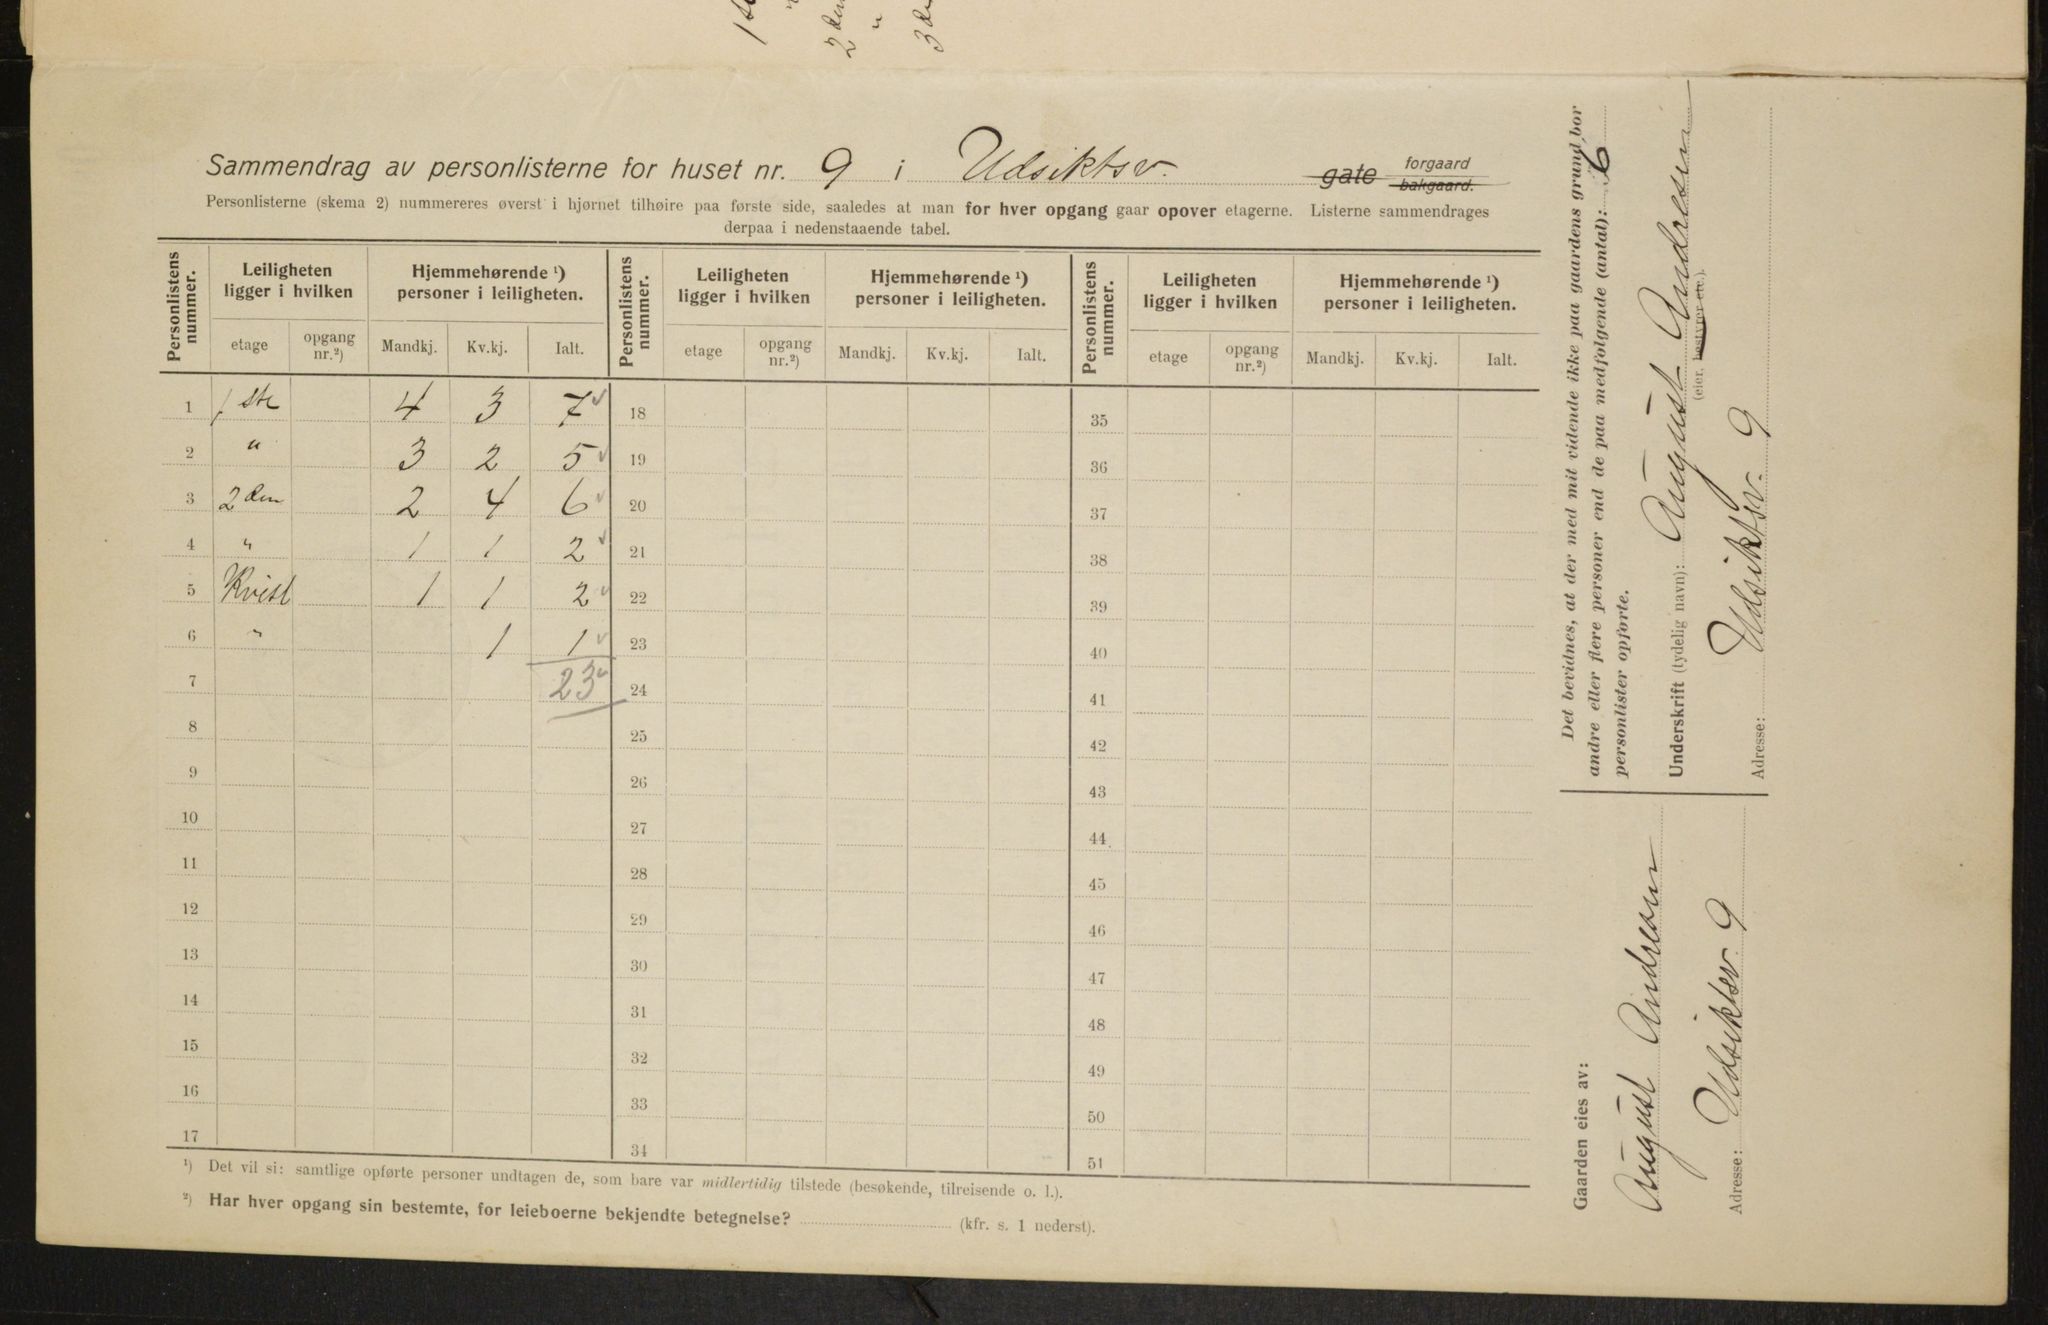 Sammendrag av personlisterne for huset nr. 9 i Udsiktsv. gate forgaard bakgaard.
Personlisterne (skema 2) nummereres øverst i hjørnet tilhøire paa første side, saaledes at man for hver opgang gaar opover etagerne. Listerne sammendrages
derpaa i nedenstaaende tabel.
Personlistens nummer. Leiligheten ligger i hvilken Hjemmehørende ¹) personer i leiligheten. Personlistens nummer. Leiligheten ligger i hvilken Hjemmehørende ¹) personer i leiligheten. Personlistens nummer. Leiligheten ligger i hvilken Hjemmehørende ¹) personer i leiligheten.
etage opgang nr.²) Mandkj. Kv.kj. Ialt. etage opgang nr.²) Mandkj. Kv.kj. Ialt. etage opgang nr.²) Mandkj. Kv.kj. Ialt.
1 1 ste 4 3 7 18 35
2 " 3 2 5 19 36
3 2 den 2 4 6 20 37
4 " 1 1 2 21 38
5 Kvist 1 1 2 22 39
6 " 1 1 23 40
7 23 24 41
8 25 42
9 26 43
10 27 44
11 28 45
12 29 46
13 30 47
14 31 48
15 32 49
16 33 50
17 34 51
¹) Det vil si: samtlige opførte personer undtagen de, som bare var midlertidig tilstede (besøkende, tilreisende o. l.).
²) Har hver opgang sin bestemte, for leieboerne bekjendte betegnelse? (kfr. s. 1 nederst).
Det bevidnes, at der med mit vidende ikke paa gaardens grund bor
andre eller flere personer end de paa medfølgende (antal): 6
personlister opførte.
Underskrift (tydelig navn): August Andresen
(eier, bestyrer etc.).
Adresse: Udsiktsv. 9
Gaarden eies av:
August Andresen
Adresse: Udsiktsv 9
1ste
"
2 den
"
3 de